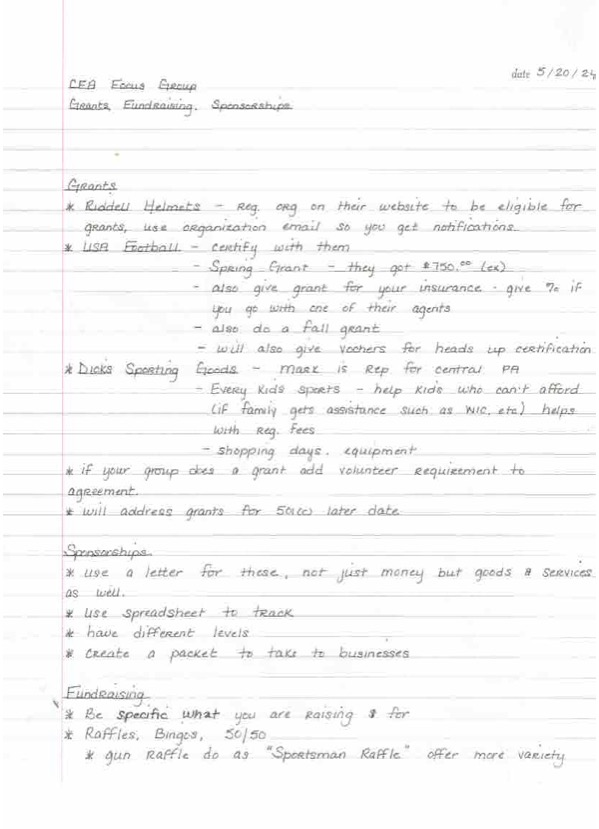 date 5/20/24
CFA Focus Group
Grants, Fundraising, Sponsorships
Grants
* Riddell Helmets - Reg. org on their website to be eligible for
grants, use organization email so you get notifications.
* USA Football - certify with them
- Spring Grant - they got $750.00 (ex)
- also give grant for your insurance - give % if
you go with one of their agents
- also do a fall grant
- will also give vochers for heads up certification
* Dicks Sporting Goods - Mark is Rep for central PA
- Every Kids Sports - help kids who can't afford
(if family gets assistance such as WIC, etc) helps
with Reg. Fees
- shopping days. equipment
* if your group does a grant add volunteer Requirement to
agreement.
* will address grants for 501(c) later date
Sponsorships
* use a letter for these, not just money but goods & services
as well.
* use spreadsheet to track
* have different levels
* create a packet to take to businesses
Fundraising
* Be specific what you are raising $ for
* Raffles, Bingos, 50/50
* gun Raffle do as "Sportsman Raffle" offer more variety